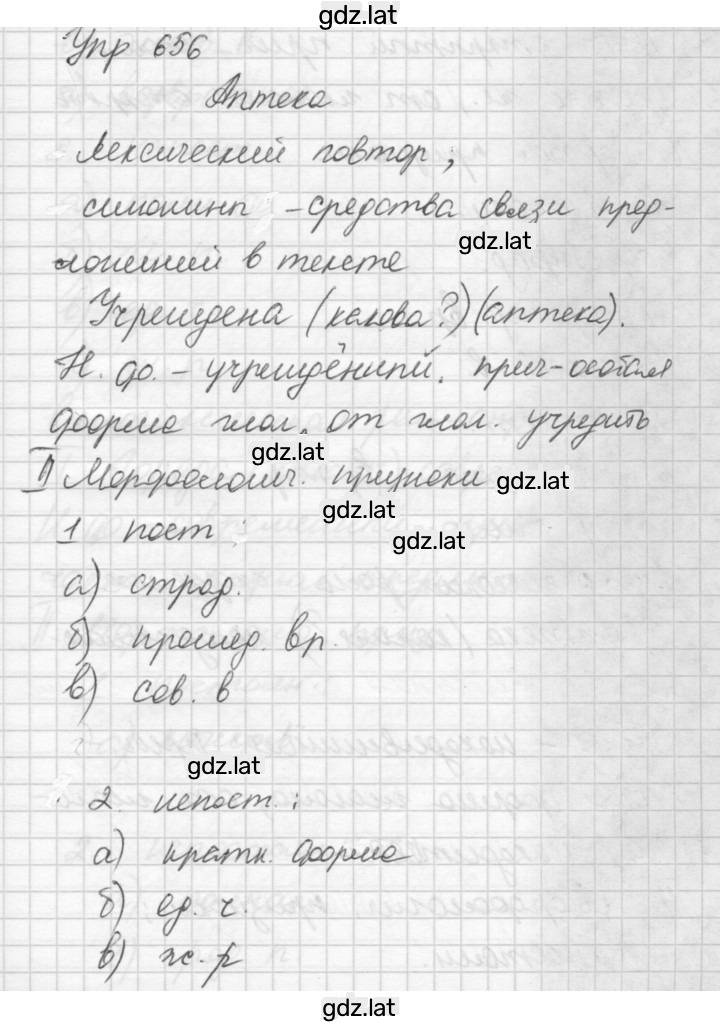 gdz.lat
Упр 656
Аптека
Лексический повтор,
синонимы – средства связи пред-
gdz.lat
ложений в тексте
Учреждена (какова?) (аптека).
Н. ф. – учреждённый, прич – особая
форма глаг. от глаг. учредить
gdz.lat
II Морфологич. признаки gdz.lat
gdz.lat
1 пост
gdz.lat
а) страд.
б) прошед. вр.
в) сов. в
gdz.lat
2. непост.:
а) кратк. форма
б) ед. ч.
в) ж. р
gdz.lat